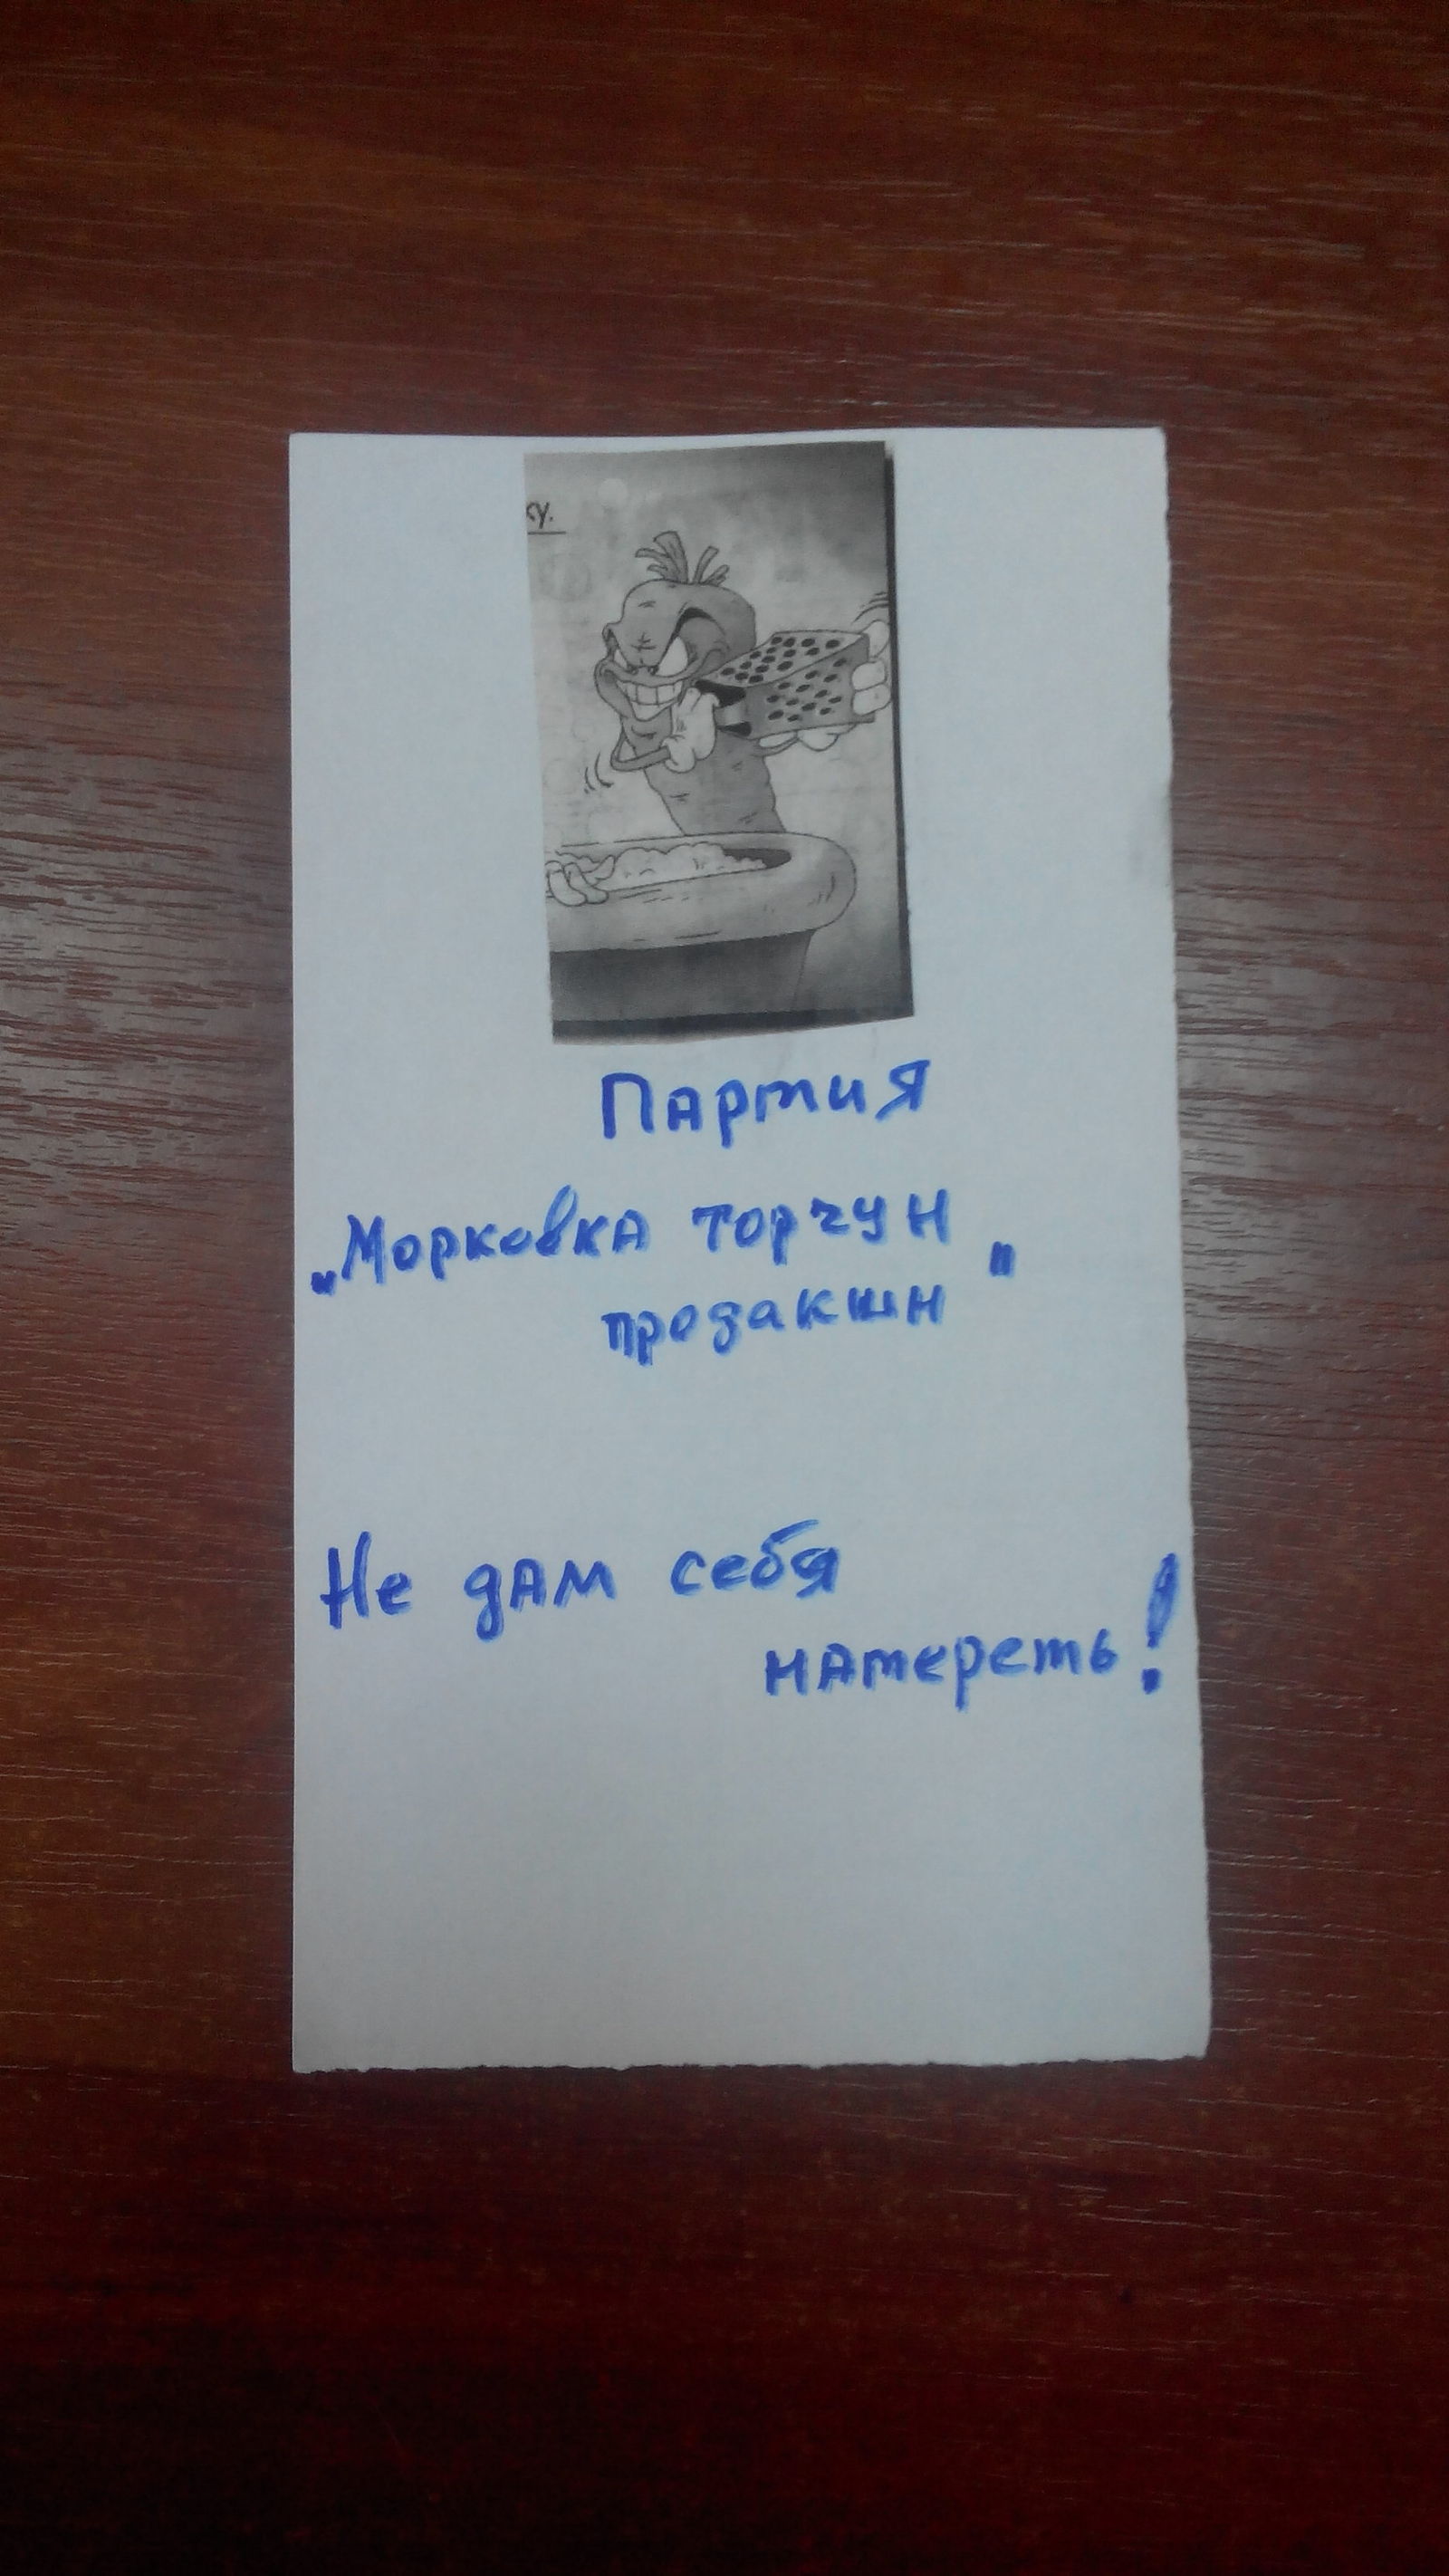 ку.
Партия
„Морковка торчун
продакшн"
Не дам себя
натереть!